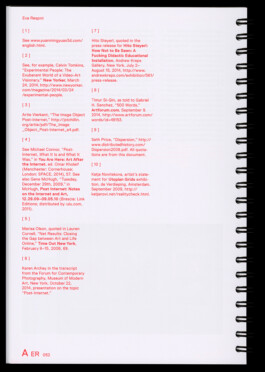 Eva Respini
[ 1 ]
See www.poemproducer52.com/
english.html.
[ 2 ]
See, for example, Calvin Tomkins,
"Experimental People: The
Exuberant World of a Video-Art
Visionary," New Yorker, March
24, 2014, http://www.newyorker.
com/magazine/2014/03/24
/experimental-people.
[ 3 ]
Artie Vierkant, "The Image Object
Post-Internet," http://jstchillin.
org/artie/pdf/The_Image
_Object_Post-Internet_a4.pdf.
[ 4 ]
See Michael Connor, "Post-
Internet: What It Is and What It
Was," in You Are Here: Art After
the Internet, ed. Omar Kholeif
(Manchester: Cornerhouse;
London: SPACE, 2014), 57. See
also Gene McHugh, "Tuesday,
December 29th, 2009," in
McHugh, Post-Internet: Notes
on the Internet and Art,
12.29.09–09.05.10 (Brescia: Link
Editions, distributed by Lulu.com,
2011).
[ 5 ]
Marisa Olson, quoted in Lauren
Cornell, "Net Results: Closing
the Gap between Art and Life
Online," Time Out New York,
February 9–15, 2006, 69.
[ 6 ]
Karen Archey in the transcript
from the Forum for Contemporary
Photography, Museum of Modern
Art, New York, October 22,
2014; presentation on the topic
"Post-Internet."
[ 7 ]
Hito Steyerl, quoted in the
press release for Hito Steyerl:
How Not to Be Seen: A
Fucking Didactic Educational
Installation, Andrew Kreps
Gallery, New York, July 2–
August 15, 2014, http://www.
andrewkreps.com/exhibits/1001/
press-release.
[ 8 ]
A. Sanchez, "500 Words,"
Artforum.com, September 9,
[ 9 ]
Seth Price, "Dispersion," http://
www.distributedhistory.com/
Dispersion2008.pdf. All quota-
tions are from this document.
[ 10 ]
Katja Novitskova, artist's state-
tion, de Verdieping, Amsterdam,
September 2009, http://
A ER